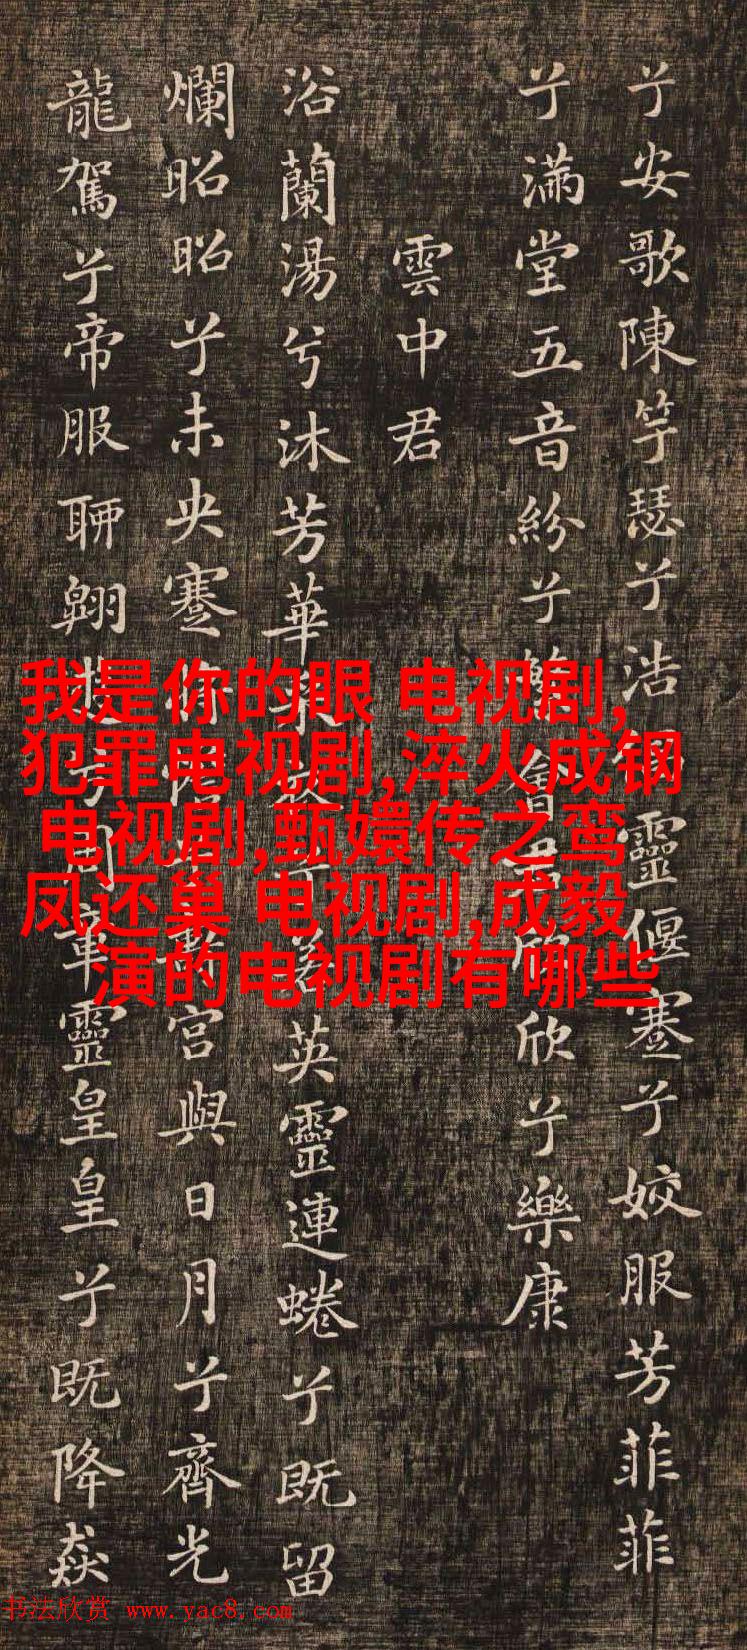 兮安歌陳竽瑟兮浩靈偃蹇兮姣服芳菲菲
兮滿堂五音紛兮會欣欣兮樂康
雲中君
浴蘭湯兮沐芳華兮若英靈連蜷兮既留
爛昭昭兮未央蹇宮與日月兮齊光
龍駕兮帝服聊翱章靈皇皇兮既降猋
我是你的眼 电视剧,
犯罪电视剧,淬火成钢
电视剧,甄嬛传之鸾
凤还巢 电视剧,成毅
演的电视剧有哪些
书法欣赏 www.yac8.com